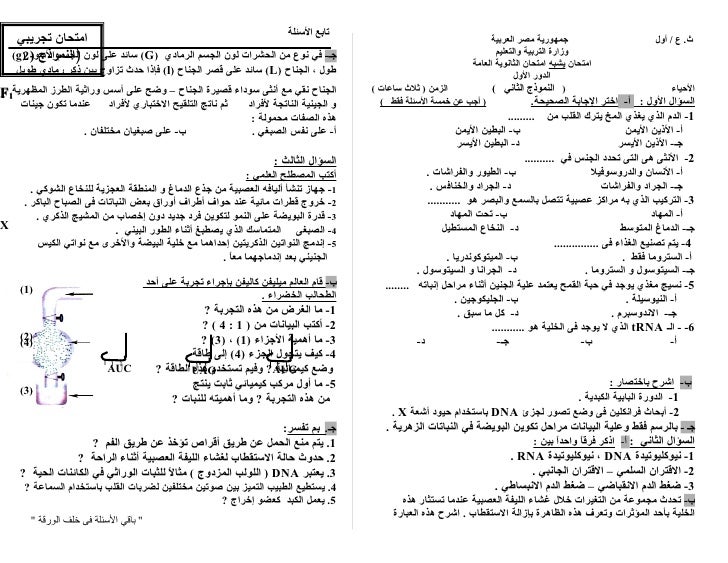 ث. ع / أول
جمهورية مصر العربية
وزارة التربية والتعليم
امتحان يشبه امتحان الثانوية العامة
الدور الأول
الأحياء ( النموذج الثاني ) الزمن ( ثلاث ساعات )
السؤال الأول : أ- اختر الإجابة الصحيحة. ( أجب عن خمسة الأسئلة فقط )
1- الدم الذي يغذي المخ يترك القلب من .........
أ- الأذين الأيمن ب- البطين الأيمن
جـ- الأذين الأيسر د- البطين الأيسر
2- الأنثى هى التى تحدد الجنس في ..........
أ- الأنسان والدروسوفيلا ب- الطيور والفراشات .
جـ- الجراد والفراشات د- الجراد والخنافس .
3- التركيب الذي به مراكز عصبية تتصل بالسمع والبصر هو ...........
أ- المهاد ب- تحت المهاد
جـ- الدماغ المتوسط د- النخاع المستطيل
4- يتم تصنيع الغذاء فى ...............
أ- الستروما فقط . ب- الميتوكوندريا .
جـ- السيتوسول و الستروما . د- الجرانا و السيتوسول .
5- نسيج مغذي يوجد في حبة القمح يعتمد علية الجنين أثناء مراحل إنباته ........
أ- النيوسيلة . ب- الجليكوجين .
جـ- الاندوسبرم . د- كل ما سبق .
6- - الـ tRNA الذي لا يوجد فى الخلية هو ...........
أ- ب- جـ- د-
ب- اشرح باختصار :
1- الدورة البابية الكبدية .
2- أبحاث فرانكلين فى وضع تصور لجزئ DNA باستخدام حيود أشعة X .
جـ- بالرسم فقط وعلية البيانات مراحل تكوين البويضة في النباتات الزهرية .
السؤال الثاني : أ- اذكر فرقا واحدا بين :
1- نيوكليوتيدة DNA ، نيوكليوتيدة RNA .
2- الاقتران السلمي – الاقتران الجانبي .
3- ضغط الدم الانقباضي – ضغط الدم الانبساطي .
ب- تحدث مجموعة من التغيرات خلال غشاء الليفة العصبية عندما تستثار هذه
الخلية بأحد المؤثرات وتعرف هذه الظاهرة بإزالة الاستقطاب . اشرح هذه العبارة
تابع الأسئلة
امتحان تجريبي
جـ- في نوع من الحشرات لون الجسم الرمادي (G) سائد على لون
طول ، الجناح (L) سائد على قصر الجناح (l) فإذا حدث تزاوج بين ذكر رمادي طويل
الجناح نقي مع أنثى سوداء قصيرة الجناح – وضح على أسس وراثية الطرز المظهرية F1
و الجينية الناتجة لأفراد ثم ناتج التلقيح الاختباري لأفراد عندما تكون جينات
هذه الصفات محمولة :
أ- على نفس الصبغي . ب- على صبغيان مختلفان .
السؤال الثالث :
أكتب المصطلح العلمي :
1- جهاز تنشأ أليافه العصبية من جذع الدماغ و المنطقة العجزية للنخاع الشوكي .
2- خروج قطرات مائية عند حواف أطراف أوراق بعض النباتات فى الصباح الباكر .
3- قدرة البويضة على النمو لتكوين فرد جديد دون إخصاب من المشيج الذكري .
4- الصبغى المتماسك الذي يصطبغ أثناء الطور البيني .
X
5- إندمج النواتين الذكريتين إحداهما مع خلية البيضة والأخرى مع نواتي الكيس
الجنيني بعد إندماجهما معاً .
ب- قام العالم ميليفن كاليفن بإجراء تجربة على أحد
الطحالب الخضراء .
1- ما الغرض من هذه التجربة ؟
2- أكتب البيانات من ( 1 : 4 ) ؟
3- ما أهمية الأجزاء (1) ، (3) ؟
4- كيف يتحول الجزء (4) إلى طاقة
وضع كيميائية ؟ وفيم تستخدم هذه الطاقة ؟
5- ما أول مركب كيميائي ثابت ينتج
من هذه التجربة ؟ وما أهميته للنبات ؟
(1)
(2)
(4)
(3)
AUC
جـ- بم تفسر :
1. يتم منع الحمل عن طريق أقراص تؤخذ عن طريق الفم ؟
2. حدوث حالة الاستقطاب لغشاء الليفة العصبية أثناء الراحة ؟
3. يعتبر DNA ( اللولب المزدوج ) مثالاً للثبات الوراثي في الكائنات الحية ؟
4. يستطيع الطبيب التميز بين صوتين مختلفين لضربات القلب باستخدام السماعة ؟
5. يعمل الكبد كعضو إخراج ؟
" باقي الأسئلة فى خلف الورقة "